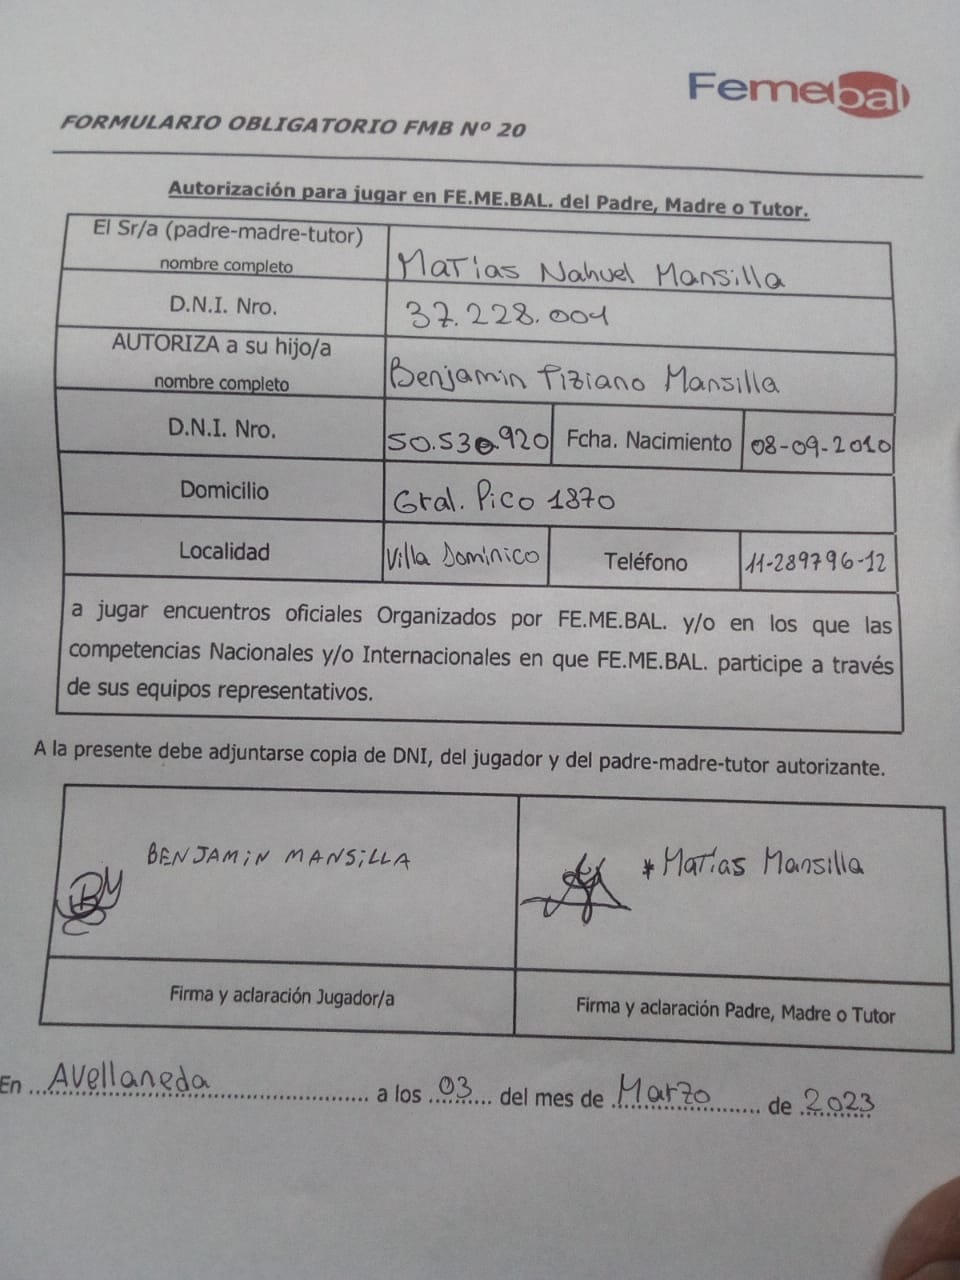 Femebal
FORMULARIO OBLIGATORIO FMB Nº 20
Autorización para jugar en FE.ME.BAL. del Padre, Madre o Tutor.
El Sr/a (padre-madre-tutor)
nombre completo
Matías Nahuel Mansilla
D.N.I. Nro.
37.228.001
AUTORIZA a su hijo/a
nombre completo
Benjamin Tiziano Mansilla
D.N.I. Nro.
50.530.920
Fcha. Nacimiento
08-09-2010
Domicilio
Gral. Pico 1870
Localidad
Villa Dominico
Teléfono
11-289796-12
a jugar encuentros oficiales Organizados por FE.ME.BAL. y/o en los que las
competencias Nacionales y/o Internacionales en que FE.ME.BAL. participe a través
de sus equipos representativos.
A la presente debe adjuntarse copia de DNI, del jugador y del padre-madre-tutor autorizante.
BENJAMiN MANSiLLA
BM
* Matías Mansilla
Firma y aclaración Jugador/a
Firma y aclaración Padre, Madre o Tutor
En Avellaneda a los 03 del mes de Marzo de 2023